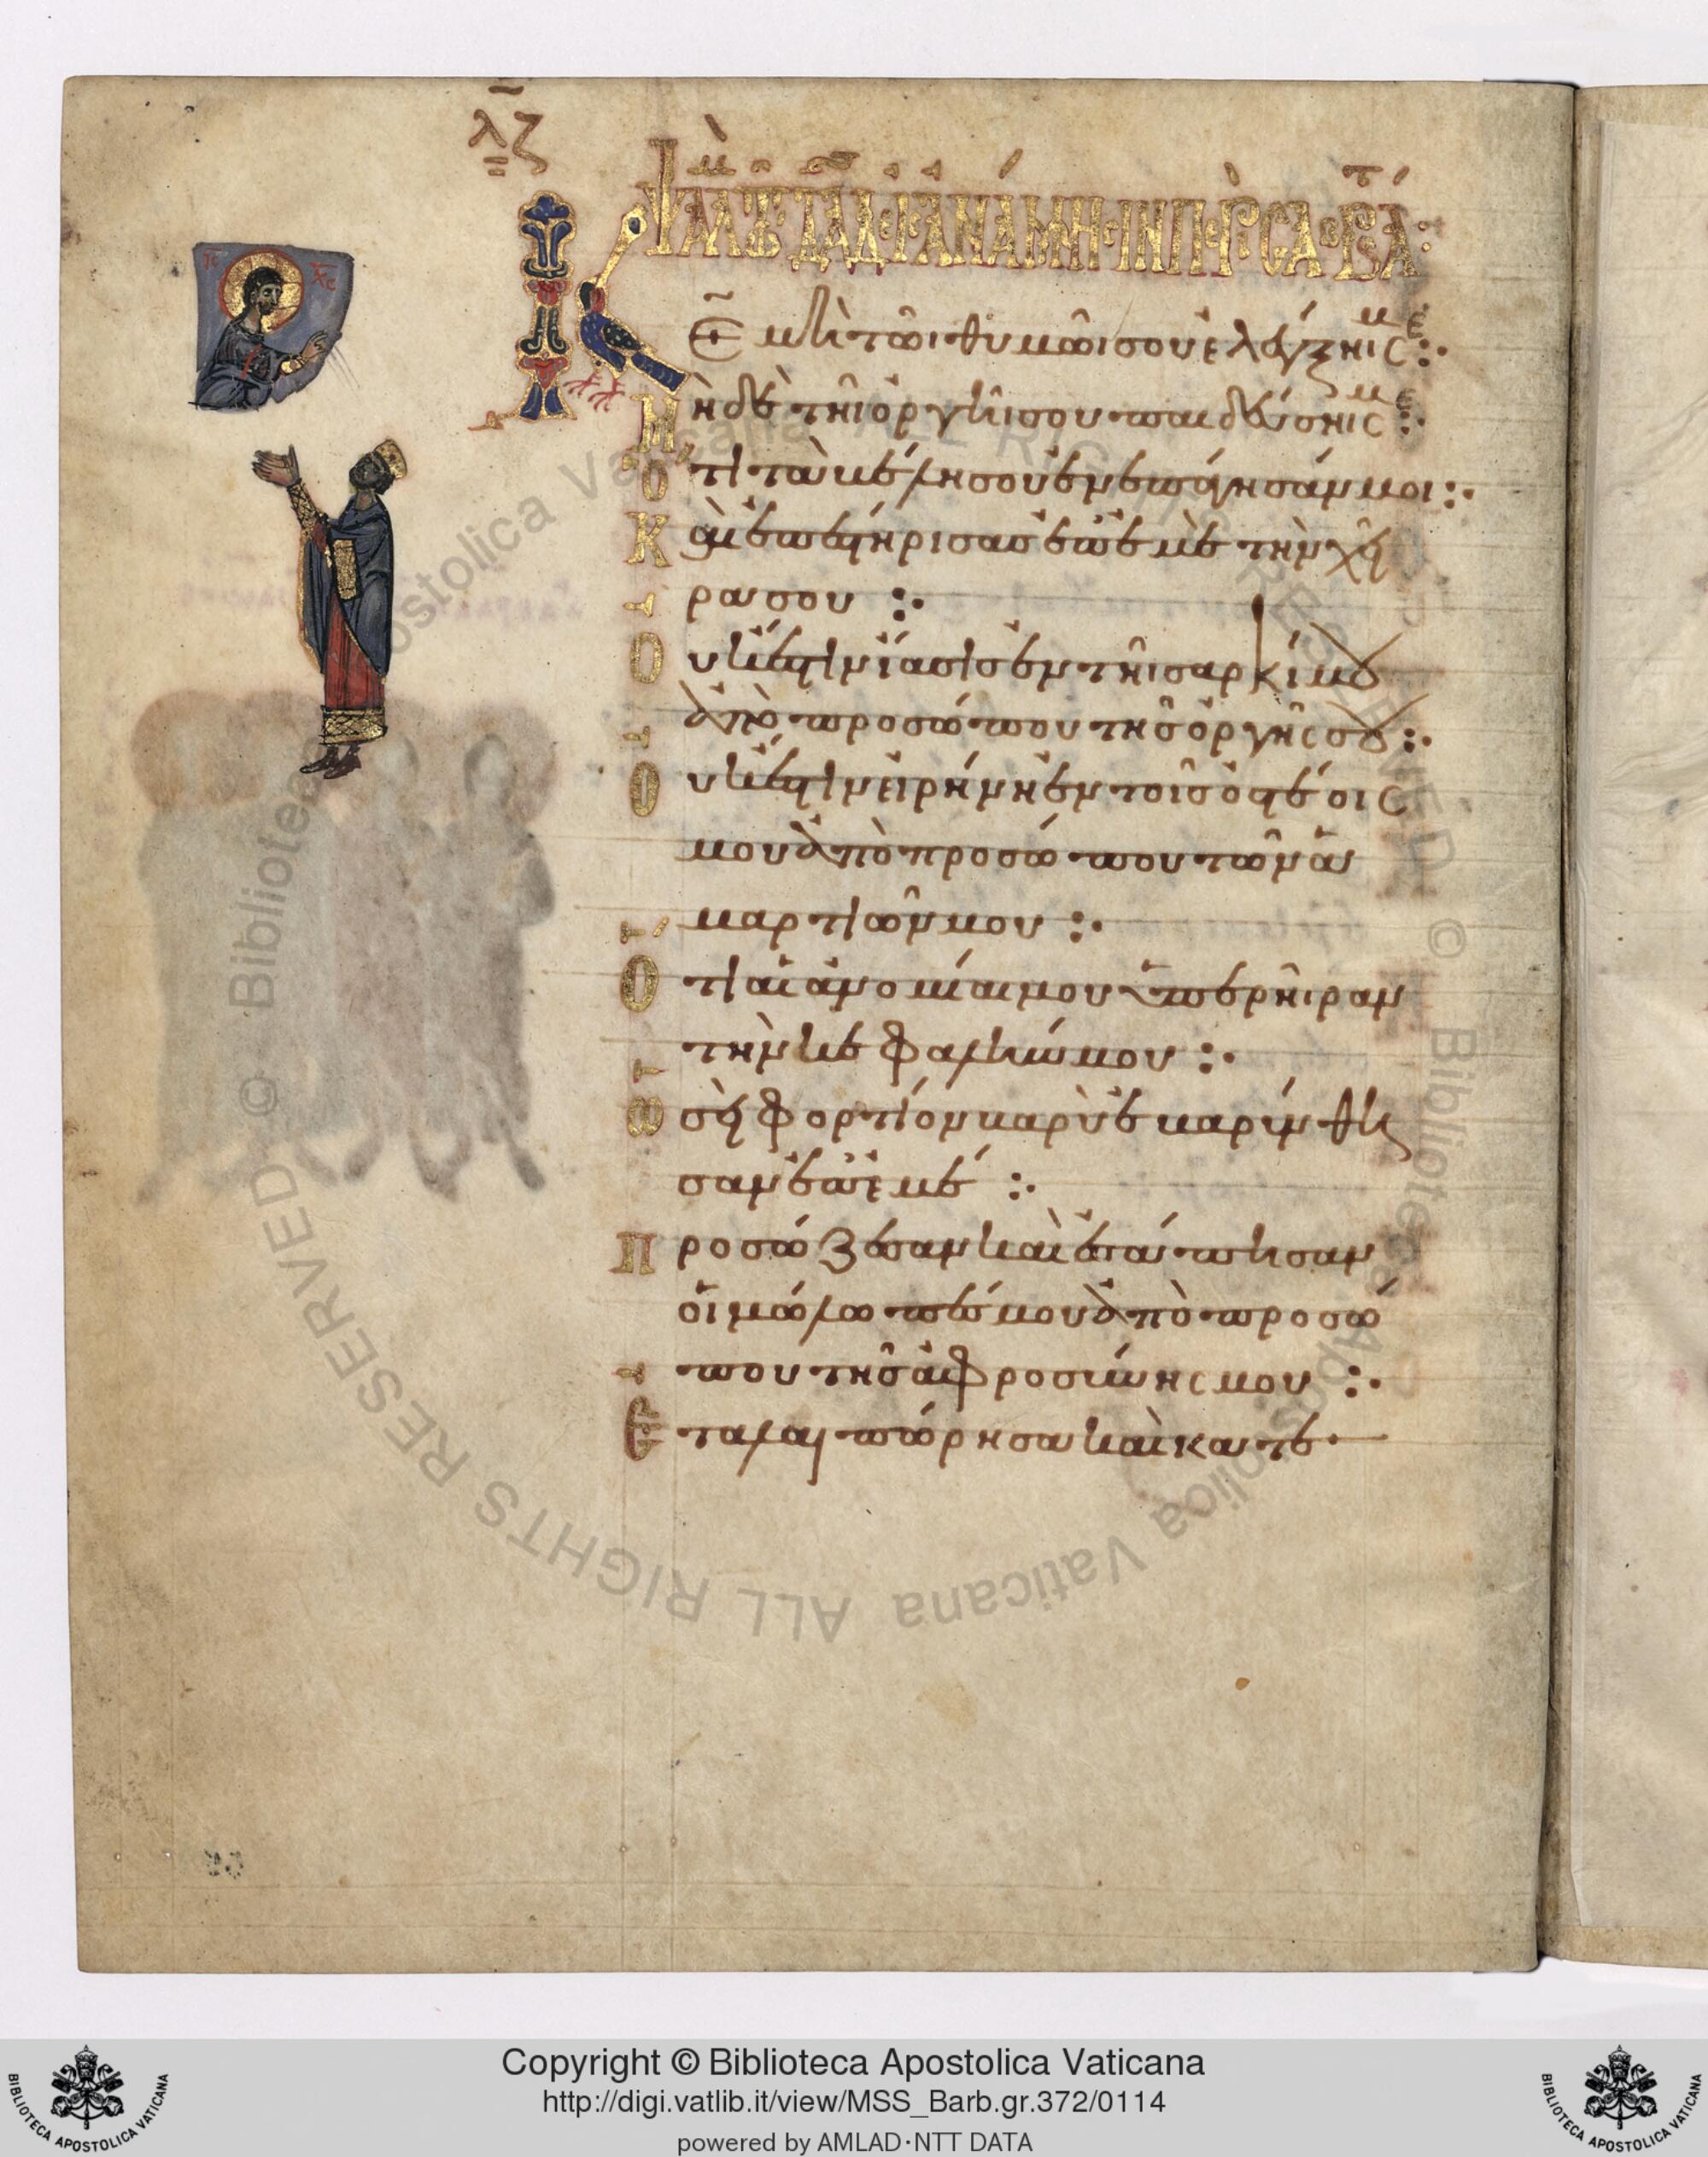 λζ
ΨΑΛΜὸς Τῶ ΔΑΔ ΕΙΣ ΑΝΑΜΝΗΣΙΝ ΠΕΡὶ ΣΑΒΒΑΤΟΥ
ΙC XC
Κε μὴ τῶι θυμῶι σου ἐλέγξηις με:·
Μηδὲ τῆι ὀργῆι σου παιδεύσηις με:·
Ὅτι τὰ βέλη σου ἐνεπάγησάν μοι:·
Καὶ ἐπεστήρισας ἐπ' ἐμὲ τὴν χεῖ
ρα σου :·
Οὐκ ἔστιν ἴασις ἐν τῆι σαρκί μου
ἀπὸ προσώπου τῆς ὀργῆς σου:·
Οὐκ ἔστιν εἰρήνη ἐν τοῖς ὀστέοις
μου ἀπὸ προσώπου τῶν ἁ
μαρτιῶν μου :·
Ὅτι αἱ ἀνομίαι μου ὑπερῆιραν
τὴν κεφαλήν μου :·
Ὡσεὶ φορτίον βαρὺ ἐβαρύνθη
σαν ἐπ' ἐμέ :·
Προσώζεσαν καὶ ἐσάπησαν
οἱ μώλωπές μου ἀπὸ προσώ
που τῆς ἀφροσύνης μου :·
Ἐταλαιπώρησα καὶ κατε
Copyright © Biblioteca Apostolica Vaticana
http://digi.vatlib.it/view/MSS_Barb.gr.372/0114
powered by AMLAD·NTT DATA
BIBLIOTECA APOSTOLICA VATICANA
BIBLIOTECA APOSTOLICA VATICANA
© Biblioteca Apostolica Vaticana ALL RIGHTS RESERVED © Biblioteca Apostolica Vaticana ALL RIGHTS RESERVED